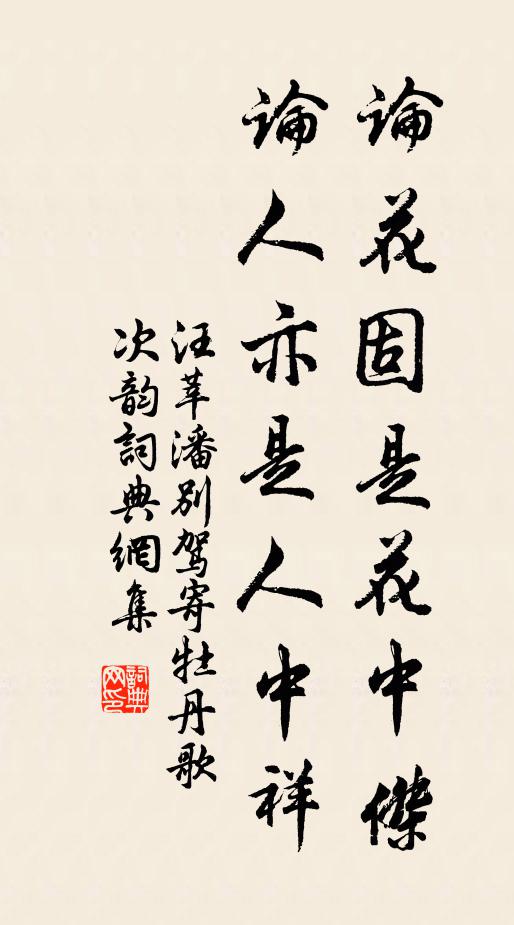 論花固是花中傑
論人亦是人中祥
汪莘潘別駕寄牡丹歌
次韵詞典網集
詞典网印